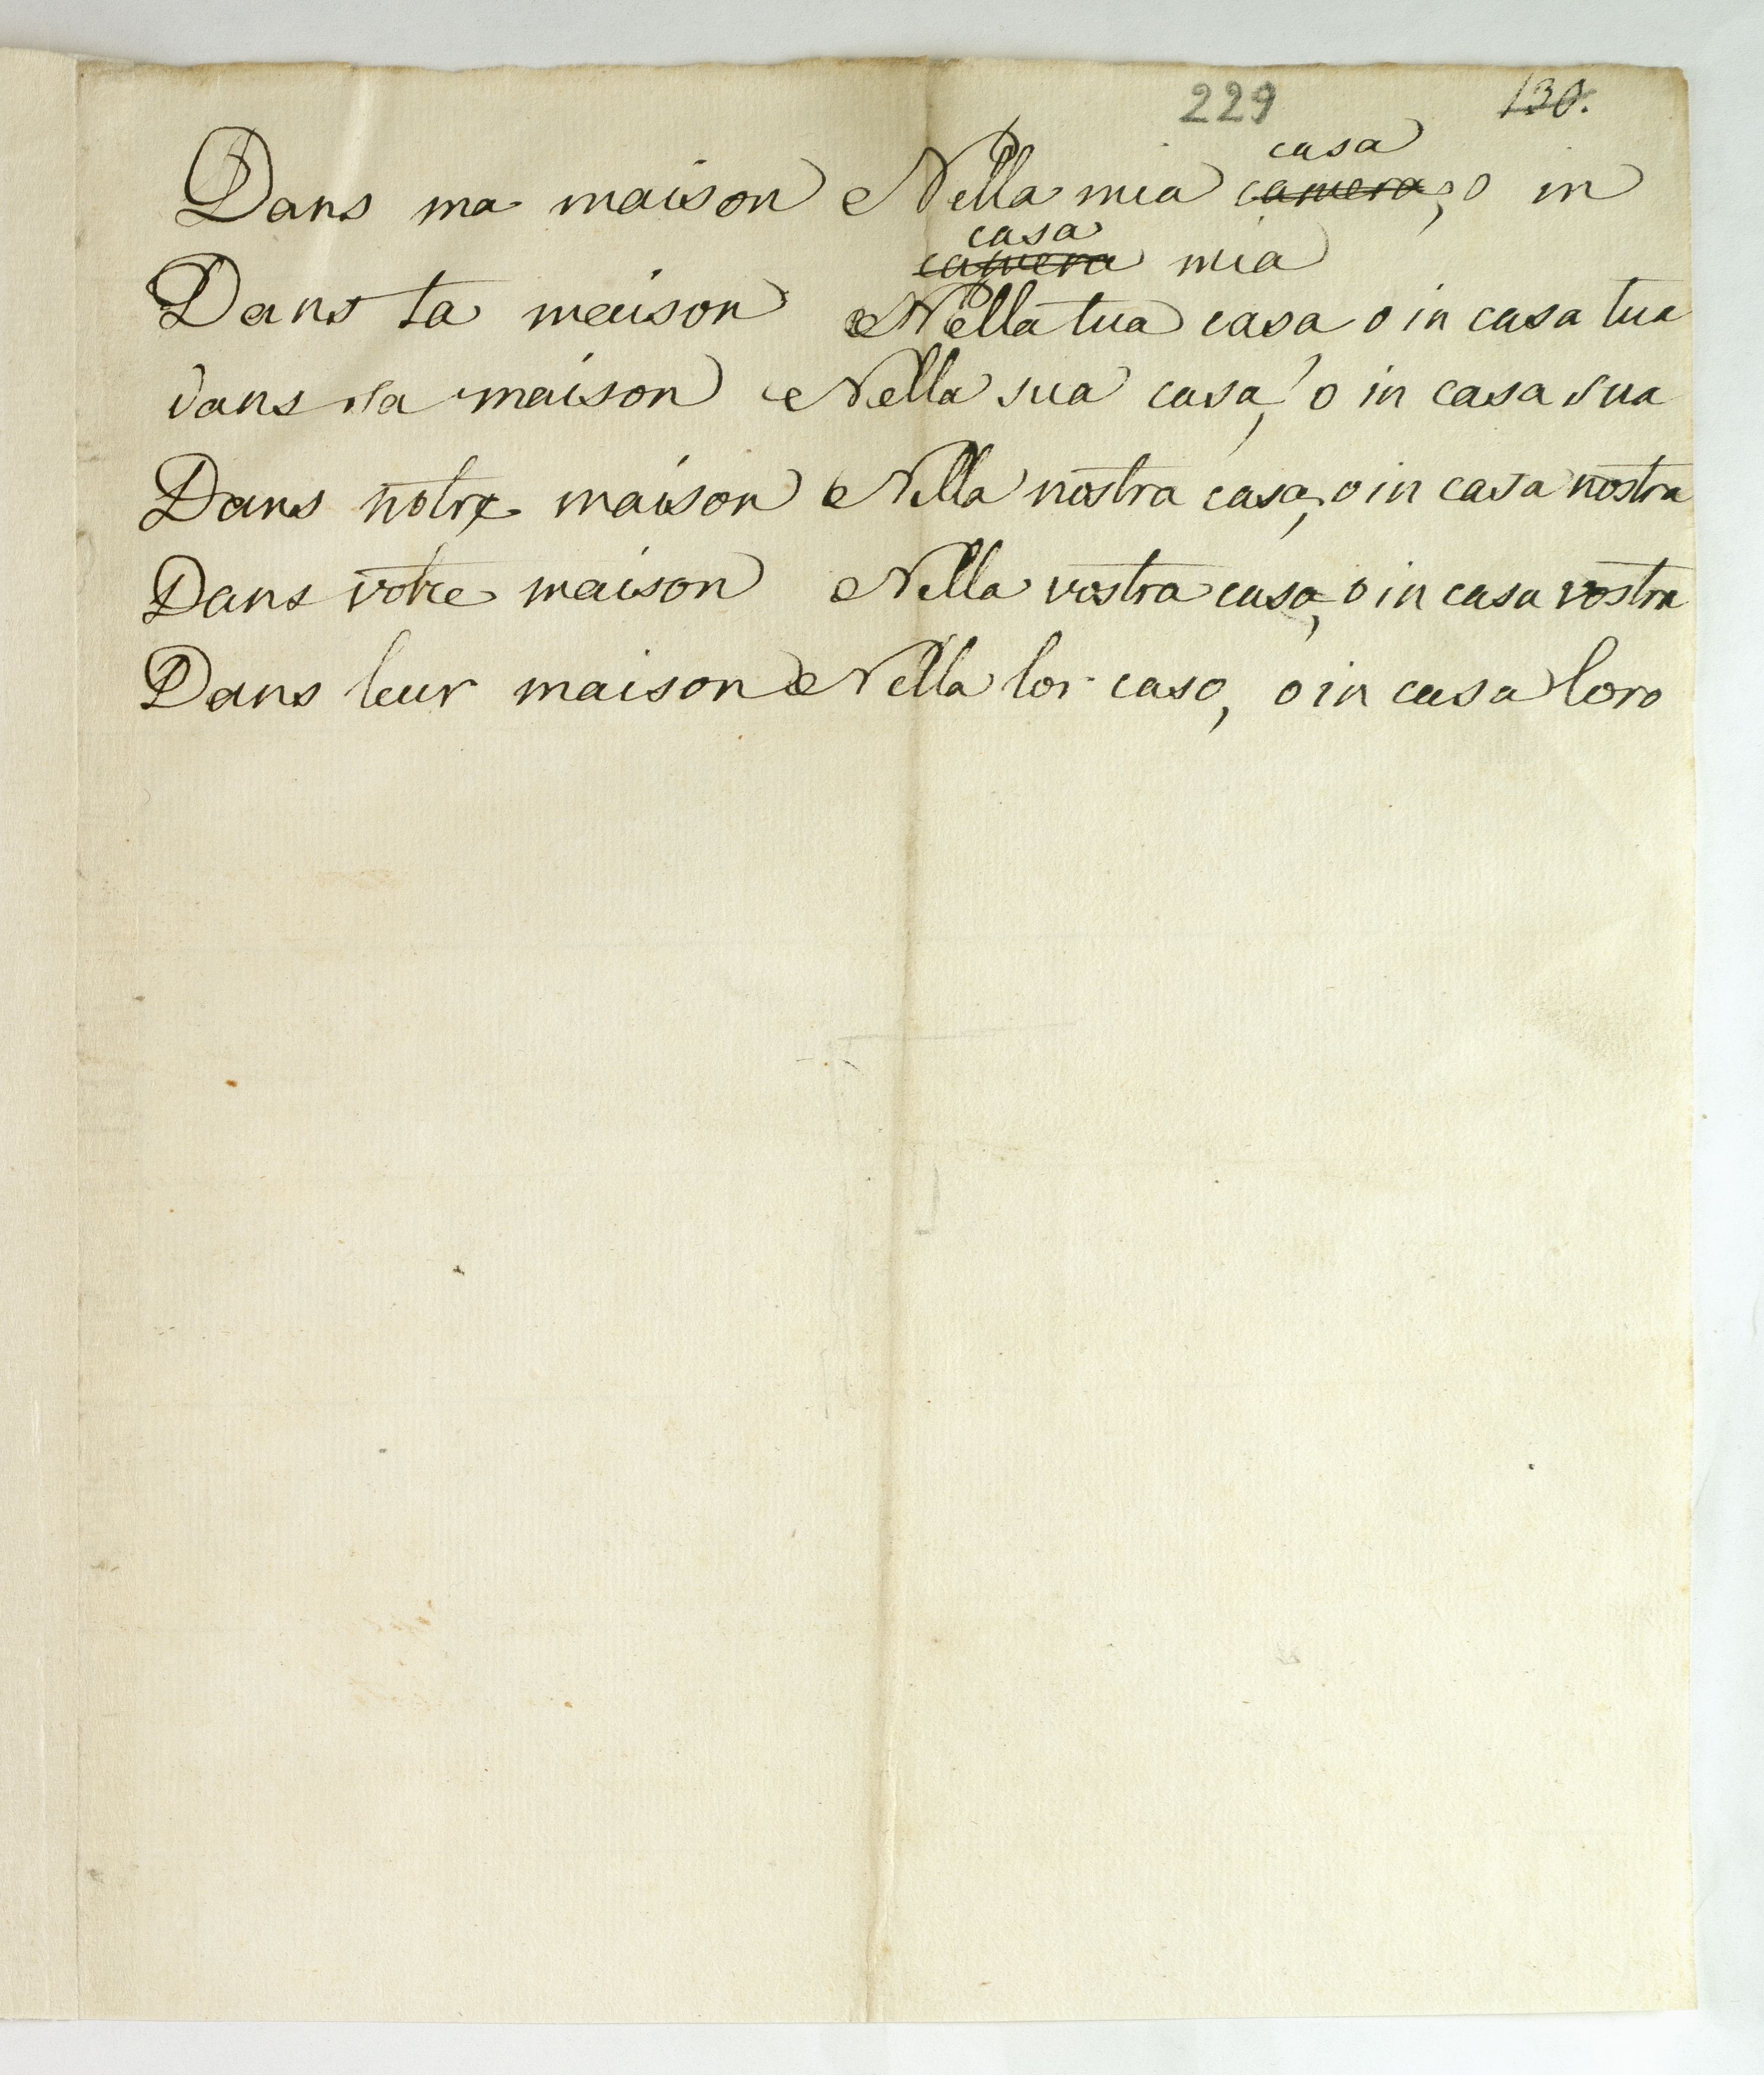 229 130.
casa
Dans ma maison Nella mia camera, o in
casa
camera mia
Dans ta maison Nella tua casa o in casa tua
dans sa maison Nella sua casa, o in casa sua
Dans notre maison Nella nostra casa, o in casa nostra
Dans votre maison Nella vostra casa, o in casa vostra
Dans leur maison Nella lor casa, o in casa loro